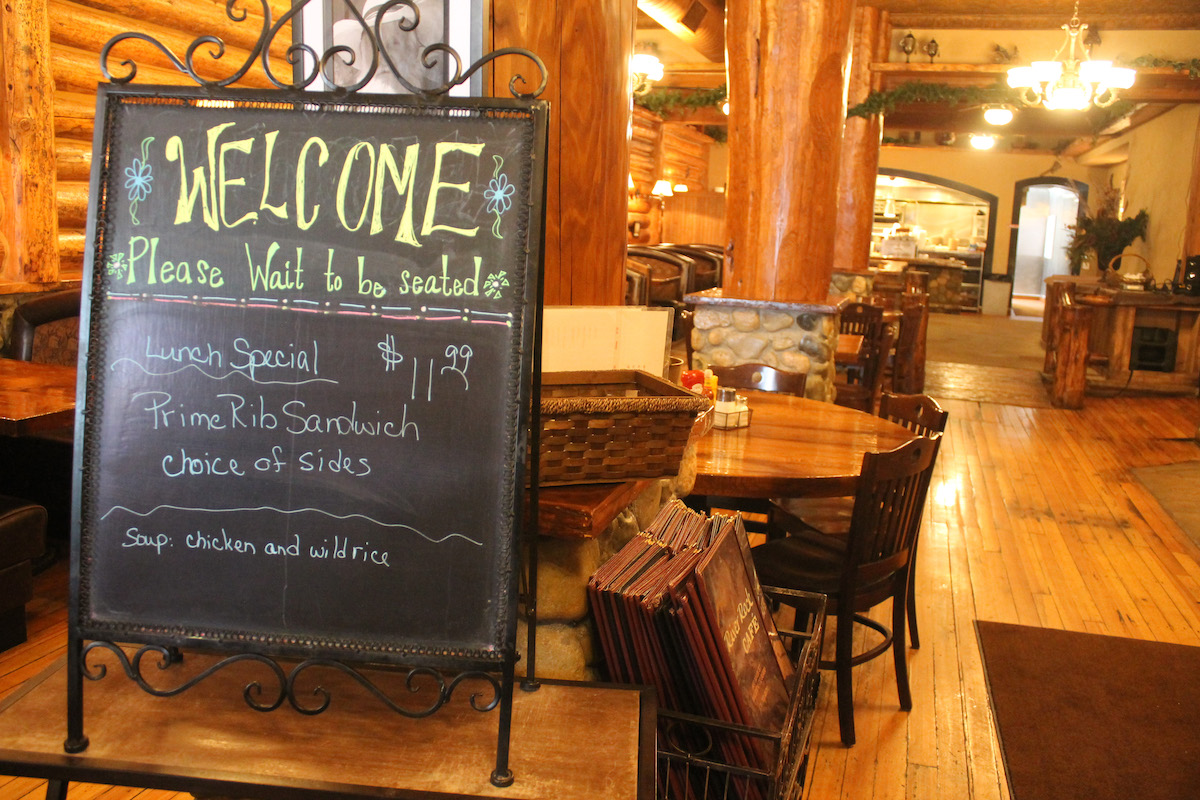 WELCOME
Please Wait to be seated
Lunch Special $11 99
Prime Rib Sandwich
choice of sides
Soup: chicken and wild rice
River Rock
CAFÉ